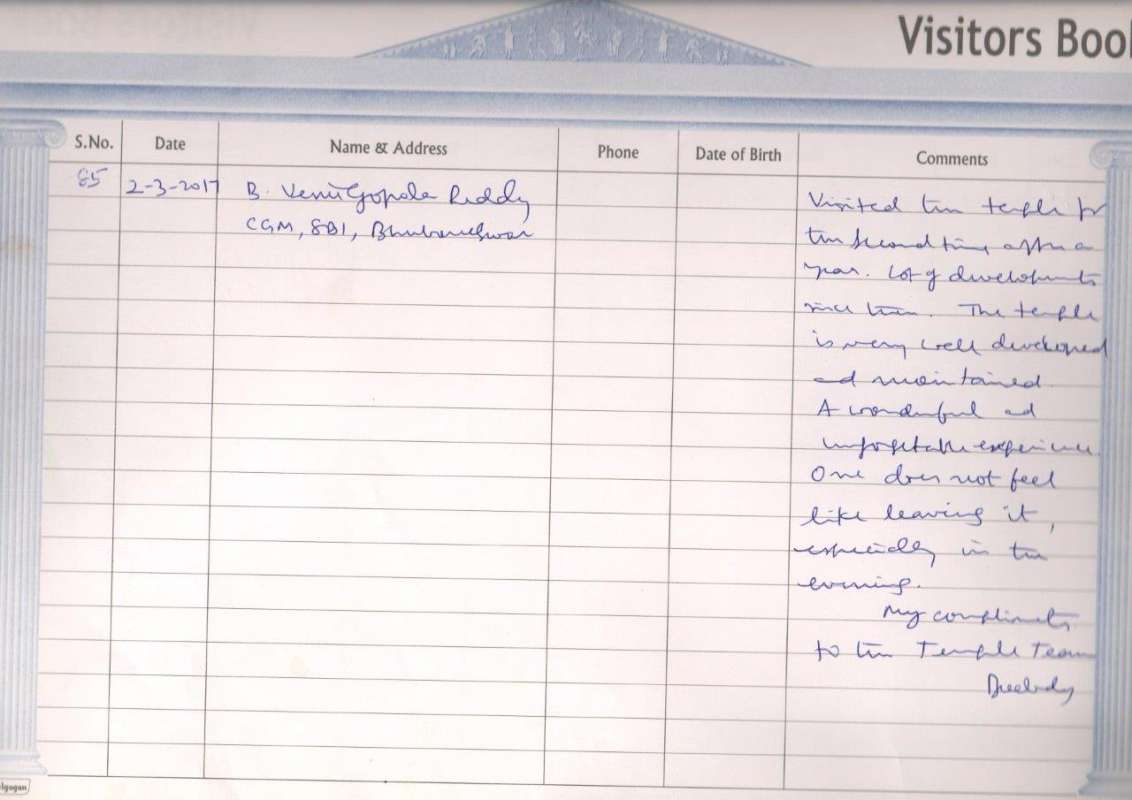 Visitors Boo
S.No. Date Name & Address Phone Date of Birth Comments
85 2-3-2017 B. Venugopala Reddy
CGM, SBI, Bhubaneshwar
Visited the temple for
the second time after a
year. Lot of developments
since then. The temple
is very well developed
and maintained.
A wonderful and
unforgettable experience.
One does not feel
like leaving it,
especially in the
evening.
My compliments
to the Temple Team